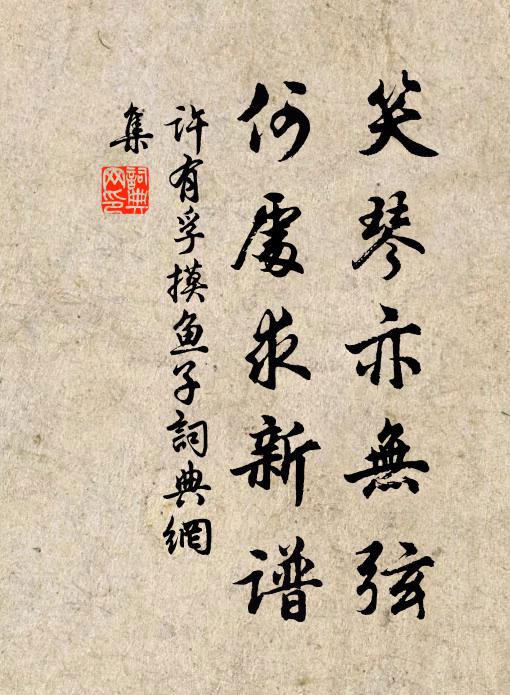 笑琴亦無弦
何處求新谱
許有孚摸鱼子詞典網
集
詞典网印